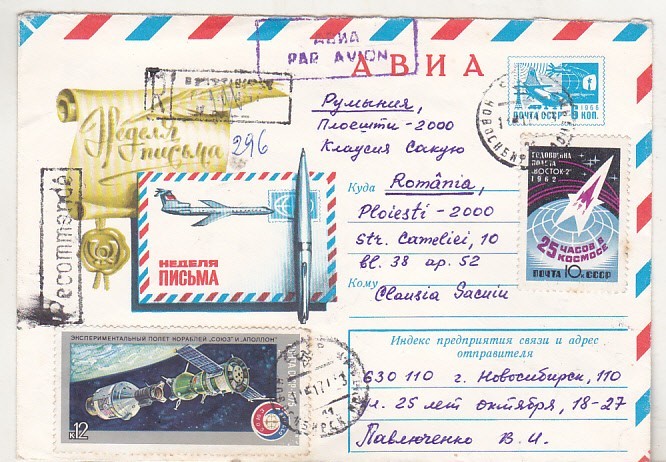 АВИА
PAR AVION
АВИА
R
Неделя
письма
296
Recommandé
НЕДЕЛЯ
ПИСЬМА
Румыния,
Плоешти-2000
Клаусия Сакую
Куда România,
Ploiesti - 2000
str. Cameliei, 10
bl. 38 ap. 52
Кому
ПОЧТА СССР
1966
6 КОП.
НОВОСИБИРСК
ГОДОВЩИНА
ПОЛЕТА
"ВОСТОК-2"
1962
25 ЧАСОВ В
КОСМОСЕ
ПОЧТА 10 К СССР
ЭКСПЕРИМЕНТАЛЬНЫЙ ПОЛЕТ КОРАБЛЕЙ „СОЮЗ" И „АПОЛЛОН"
СОЮЗ
К12
Индекс предприятия связи и адрес
отправителя
630110 г. Новосибирск, 110
ул. 25 лет октября, 18-27
Павлюченко В. И.